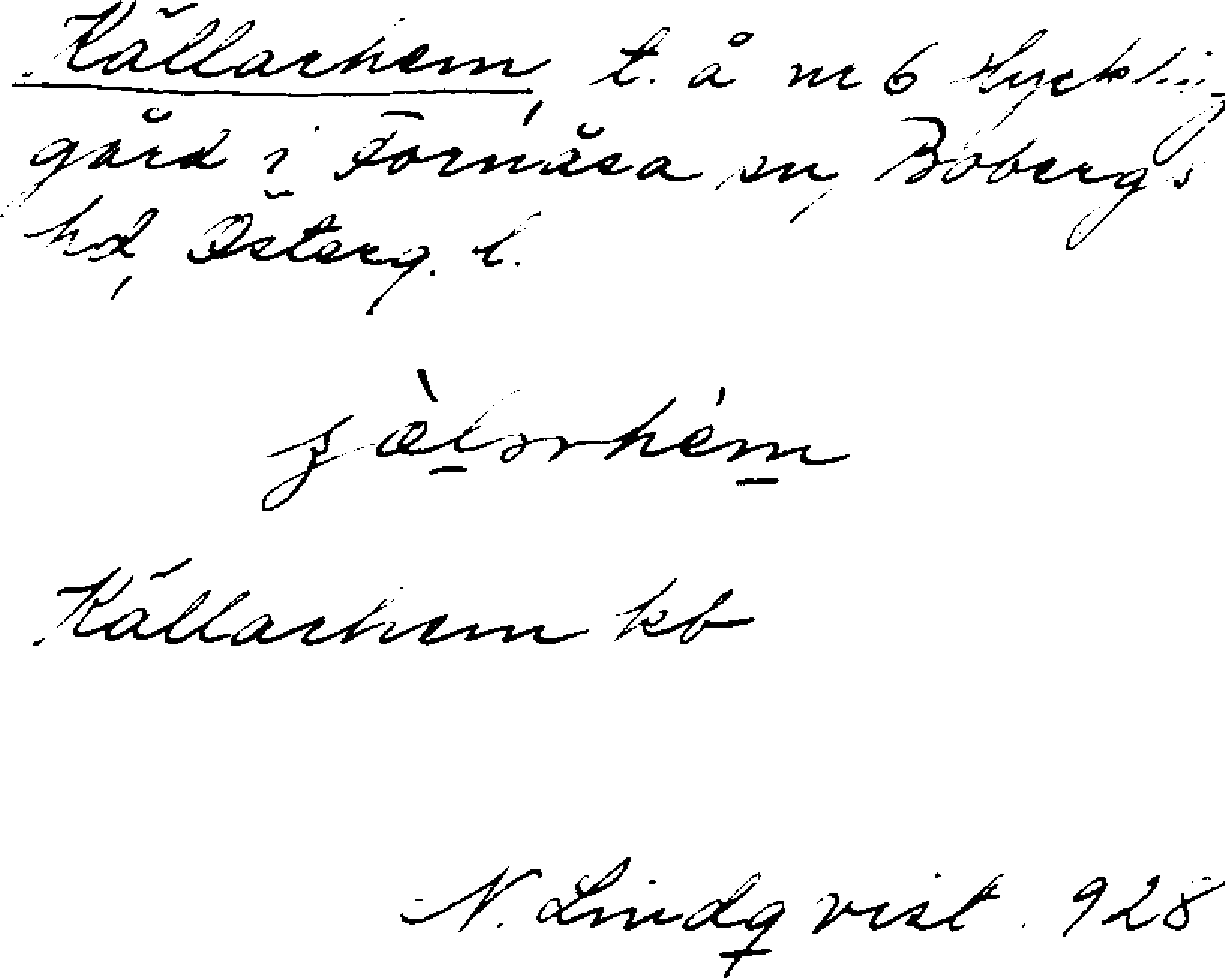 Källarhem, t. å nr 6 Hyckling
gård i Fornåsa sn, Bobergs
hd, Österg. l.
Källarhem kb
N. Lindqvist. 928